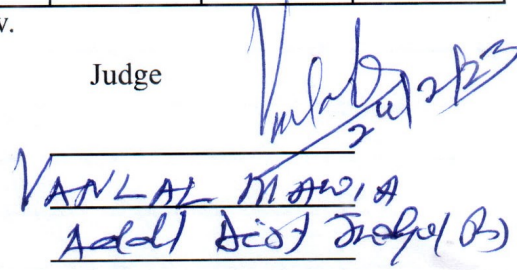 v.
Judge
24/2/23
VANLAL MAWIA
Addl Dist Judge